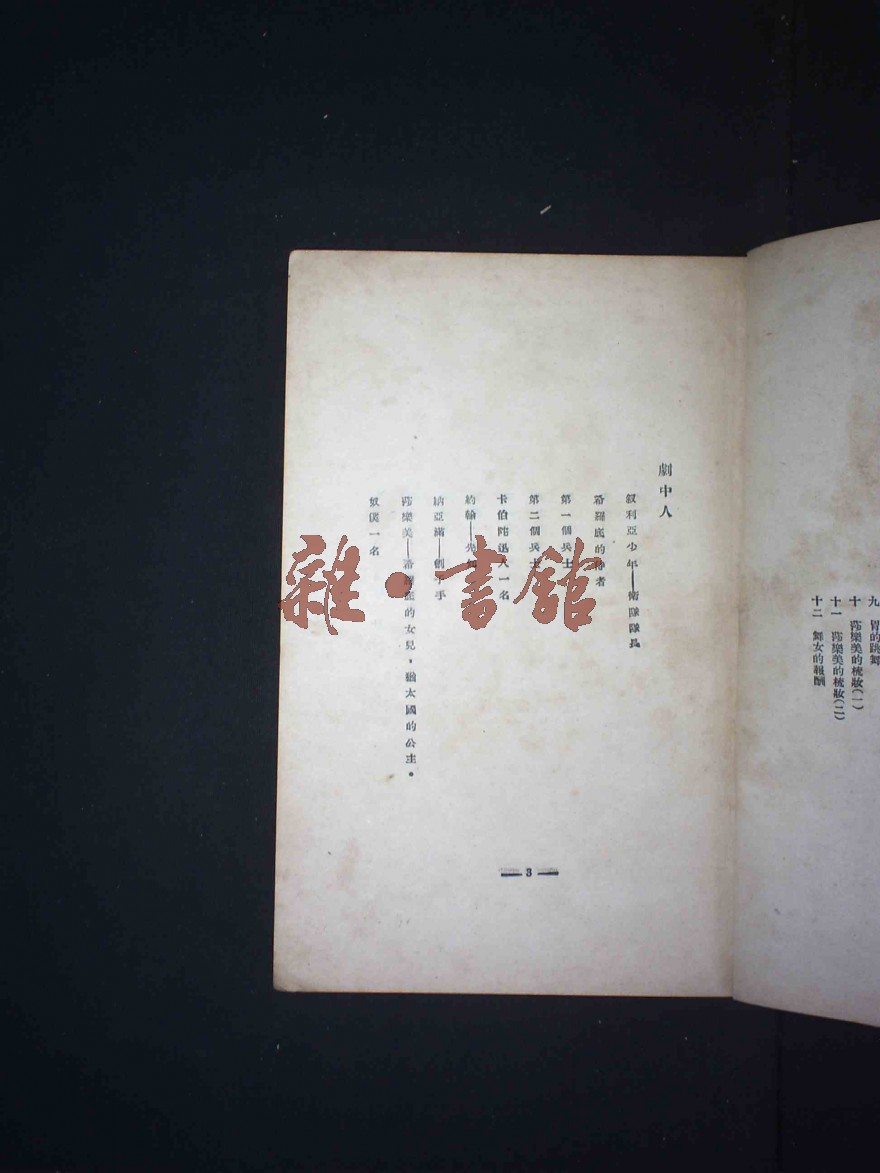 九 胃的跳舞
十 莎樂美的梳妝(一)
十一 莎樂美的梳妝(二)
十二 舞女的報酬
劇中人
敍利亞少年——衛隊隊長
希羅底的侍者
第一個兵士
第二個兵士
卡伯陀迅人一名
約翰——先
納亞滿——劊子手
莎樂美——希羅底的女兒，猶太國的公主。
奴僕一名
3
雜·書館